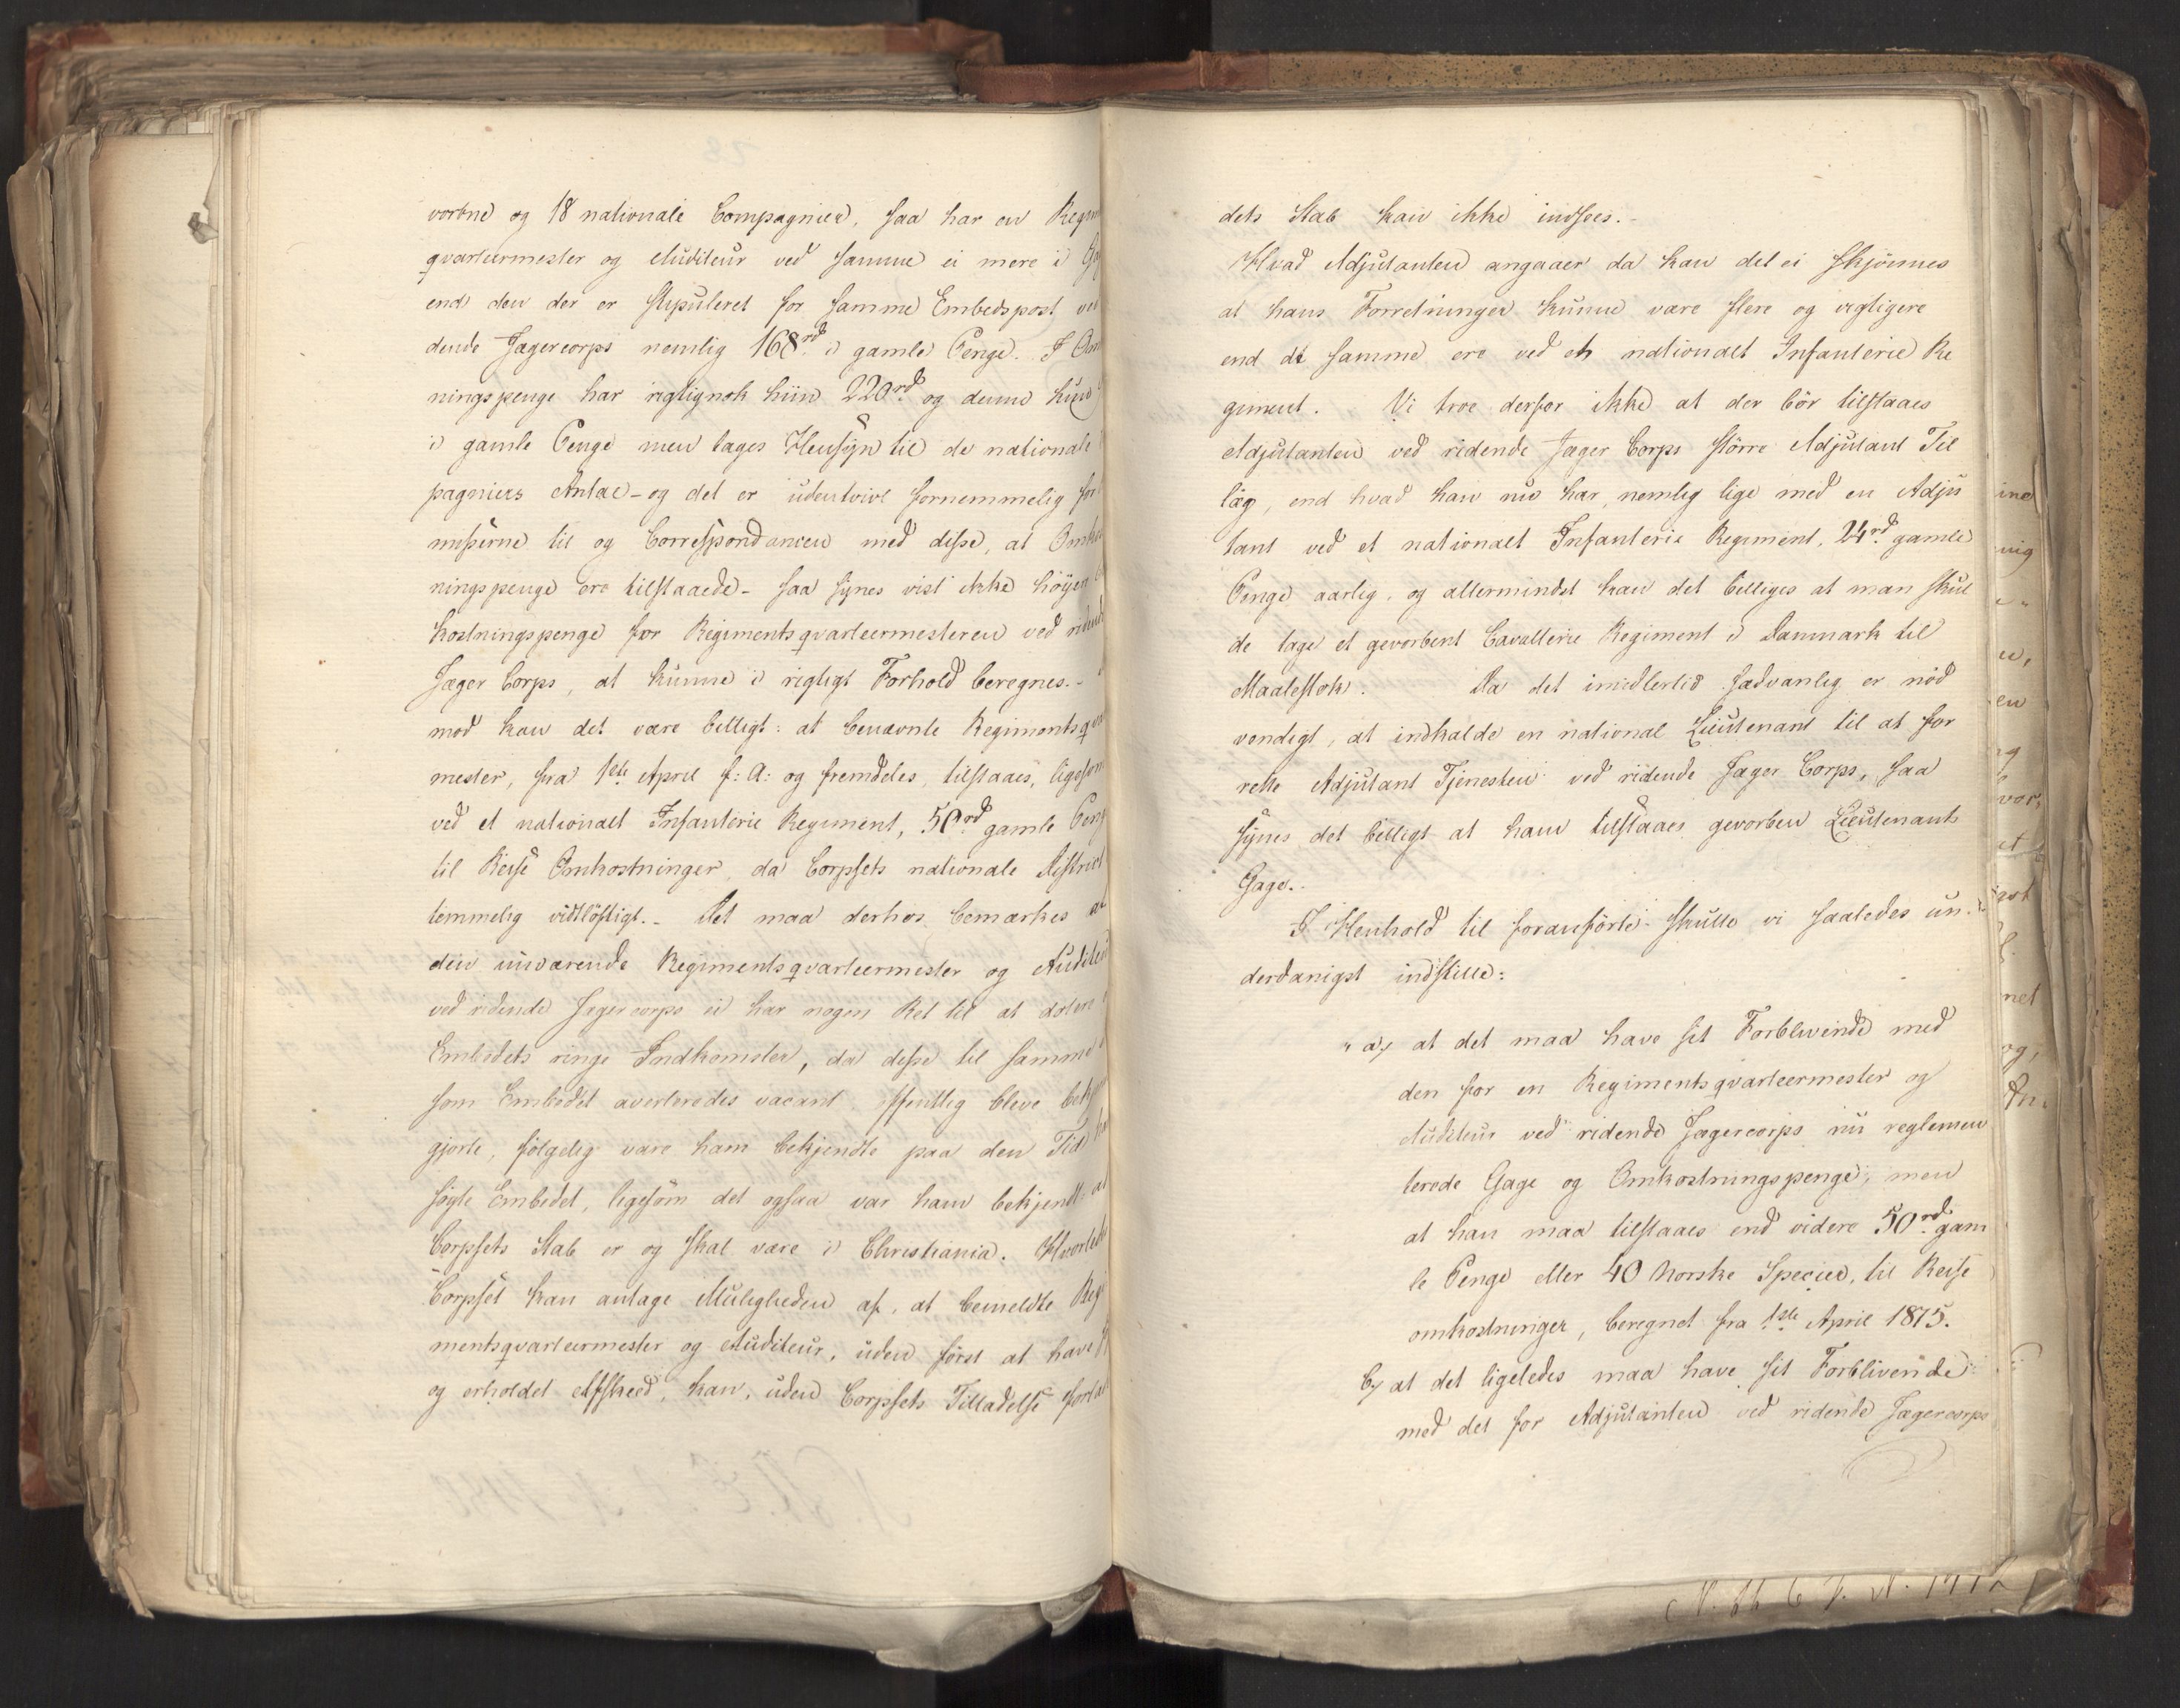 vorbne og 18 nationale Compagnier, saa har en Regim
qvarteermester og Auditeur ved samme ei mere i Ga
end den der er stipuleret for samme Embedspost ve
dende Jægercorps nemlig 168rd i gamle Penge. I Om
ningspenge har rigtignok hiin 220rd og denne kun
i gamle Penge men tages Hensyn til de nationale
pagniers Antal - og det er udentvivl fornemmelig for
til og Correspondancen med disse, at Omko
ningspenge ere tilstaaede - saa synes vist ikke höyere
kostningspenge for Regimentsqvarteermesteren ved ridende
Jæger Corps, at kunne i rigtigt Forhold beregnes. -
mod kan det være billigt: at benævnte Regimentsqva
mester, fra 1ste April f: A: og fremdeles, tilstaaes, ligesom
ved et nationalt Infanterie Regiment, 50rd gamle Peng
til Reise Omkostninger, da Corpsets nationale District
temmelig vidtlöftigt. - Det maa derhos bemærkes at
den nuværende Regimentsqvarteermester og Auditeur
ved ridende Jægercorps ei har nogen Ret til at dolere
Embedets ringe Indkomster, da disse til samme
som Embedet averteredes vacant, offentlig bleve bekj
gjorte, fölgelig vare ham bekjendte paa den Tid ha
sögte Embedet, ligesom det ogsaa var ham bekjendt: at
Corpsets Stab er og skal være i Christiania. Hvorled
Corpset kan antage Muligheden af, at bemeldte Reg
mentsqvarteermester og Auditeur, uden först at have
og erholdet Afskeed, kan, uden Corpsets Tilladelse forla
dets Stab kan ikke indsees. -
Hvad Adjutanten angaaer da kan det ei skjönnes
at hans Forretninger kunne være flere og vigtigere
end de samme ere ved et nationalt Infanterie Re
giment. Vi troe derfor ikke at der bör tilstaaes
Adjutanten ved ridende Jæger Corps större Adjutant Til
læg, end hvad han nu har, nemlig lige med en Adju
tant ved et nationalt Infanterie Regiment, 24rd gamle
Penge aarlig, og allermindst kan det billiges at man skul
de tage et gevorbent Cavallerie Regiment i Danmark til
Maalestok. Da det imidlertid sædvanlig er nöd
vendigt, at indkalde en national Lieutenant til at for
rette Adjutant Tjenesten ved ridende Jæger Corps, saa
synes det billigt at ham tilstaaes gevorben Lieutenants
Gage. -
I Henhold til foranförte skulle vi saaledes un-
derdanigst indstille:
" a, at det maa have sit Forblivende med
den for en Regimentsqvarteermester og
Auditeur ved ridende Jægercorps nu reglemen
terede Gage og Omkostningspenge, men
at han maa tilstaaes end videre 50rd gam
le Penge eller 40 Norske Specier, til Reise
omkostninger, beregnet fra 1ste April 1815.
b, at det ligeledes maa have sit Forblivende
med det for Adjutanten ved ridende Jægercorps